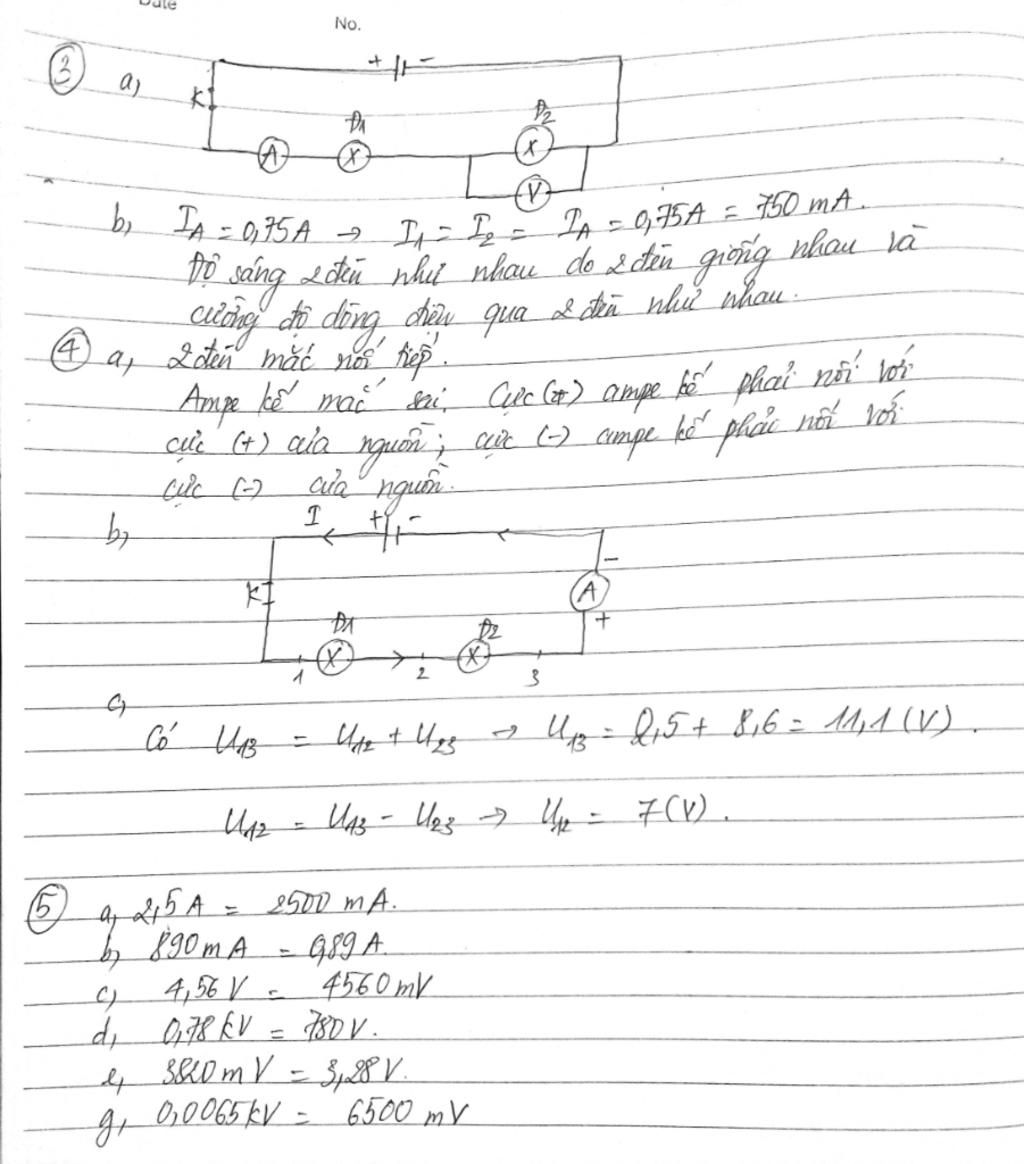 Date
No.
③ a,
+ -
K
Đ1
Đ2
A X X
V
b, I_A = 0,75A → I_1 = I_2 = I_A = 0,75A = 750 mA.
Độ sáng 2 đèn như nhau do 2 đèn giống nhau và
cường độ dòng điện qua 2 đèn như nhau.
④ a, 2 đèn mắc nối tiếp.
Ampe kế mắc sai. Cực (+) ampe kế phải nối với
cực (+) của nguồn; cực (-) ampe kế phải nối với
cực (-) của nguồn.
b,
I + -
-
K A
+
Đ1 Đ2
X X
1 2 3
c,
Có U_13 = U_12 + U_23 → U_13 = 2,5 + 8,6 = 11,1 (V).
U_12 = U_13 - U_23 → U_12 = 7 (V).
⑤ a, 2,5A = 2500 mA.
b, 890mA = 0,89A.
c, 4,56V = 4560mV
d, 0,78kV = 780V.
e, mV = 3,28V.
g, 0,0065kV = 6500 mV